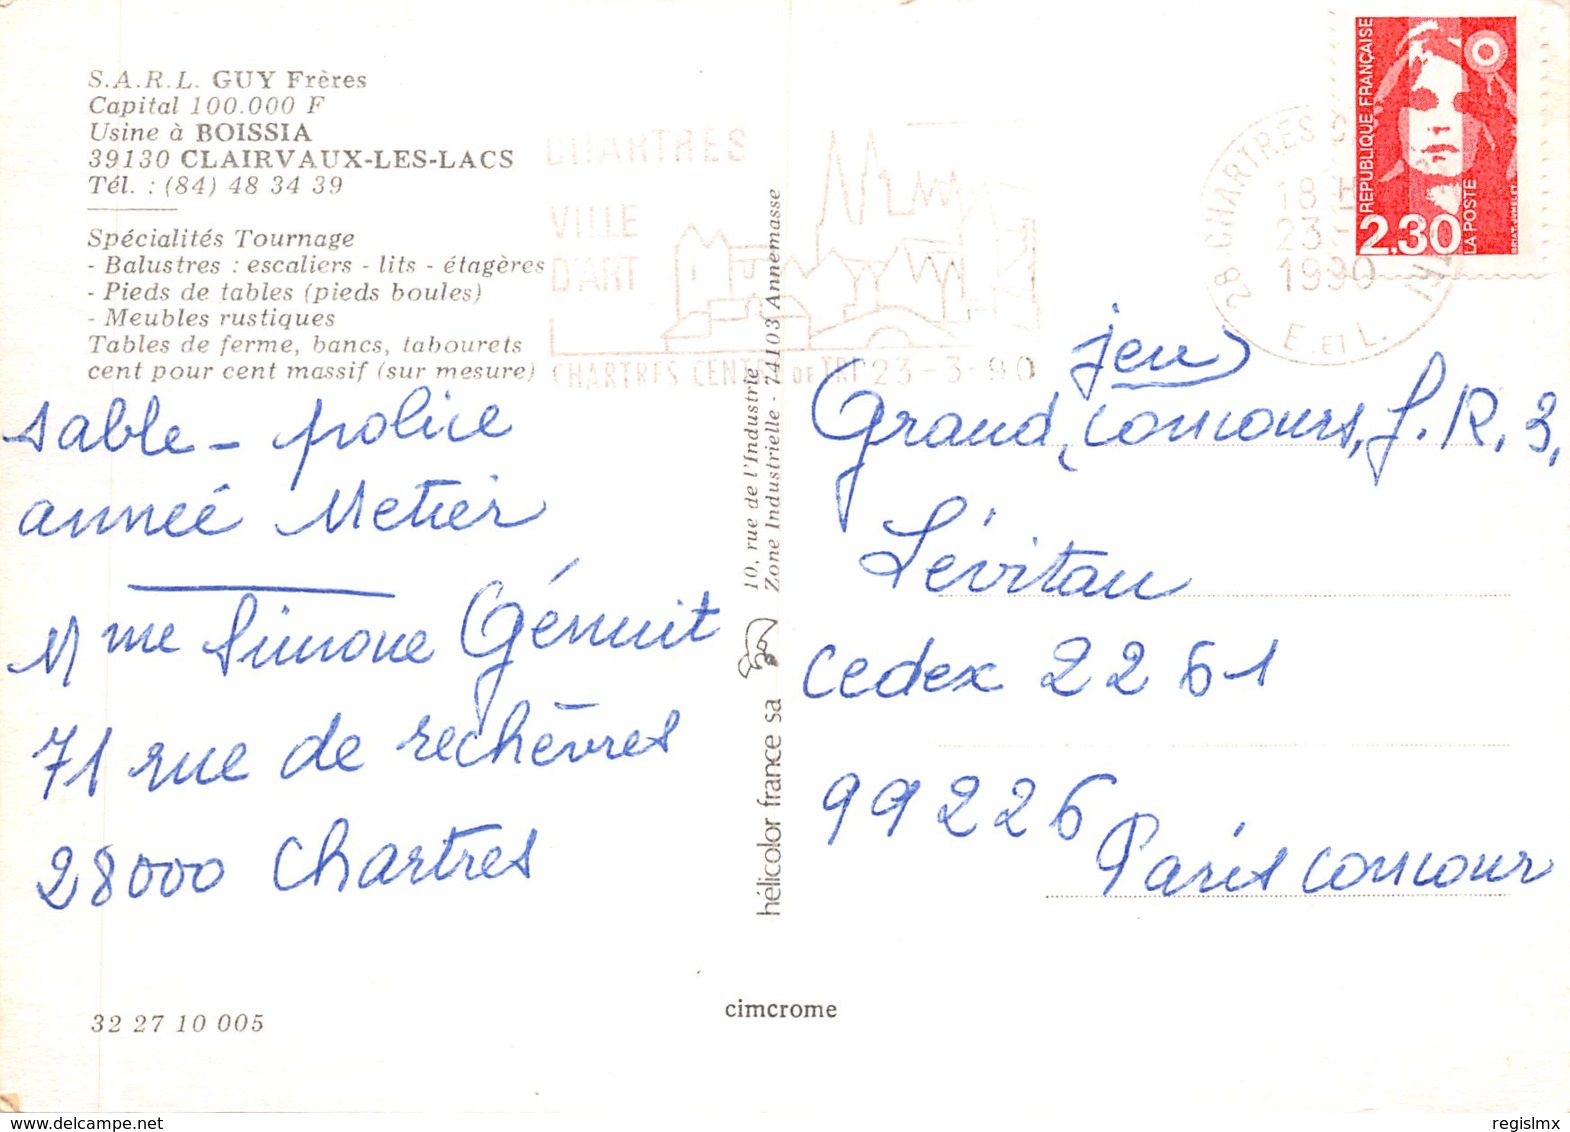 S.A.R.L. GUY Frères
Capital 100.000 F
Usine à BOISSIA
39130 CLAIRVAUX-LES-LACS
Tél. : (84) 48 34 39
Spécialités Tournage
- Balustres : escaliers - lits - étagères
- Pieds de tables (pieds boules)
- Meubles rustiques
Tables de ferme, bancs, tabourets
cent pour cent massif (sur mesure)
sable - police
anneé Metier
Mme Simone Génuit
71 rue de rechèvres
28000 Chartres
32 27 10 005
CHARTRES
VILLE
D'ART
CHARTRES CENTRE DE TRI 23-3-90
10, rue de l'Industrie
Zone Industrielle - 74103 Annemasse
hélicolor france sa
cimcrome
28 CHARTRES
18 H
23-
1990
E. ET L.
RÉPUBLIQUE FRANÇAISE
2,30
LA POSTE
BRIAT-JUMELET
jeu
Grand, concours, F.R.3,
Lévitan
cedex 2261
99226
Paris concour
delcampe.net
regislmx